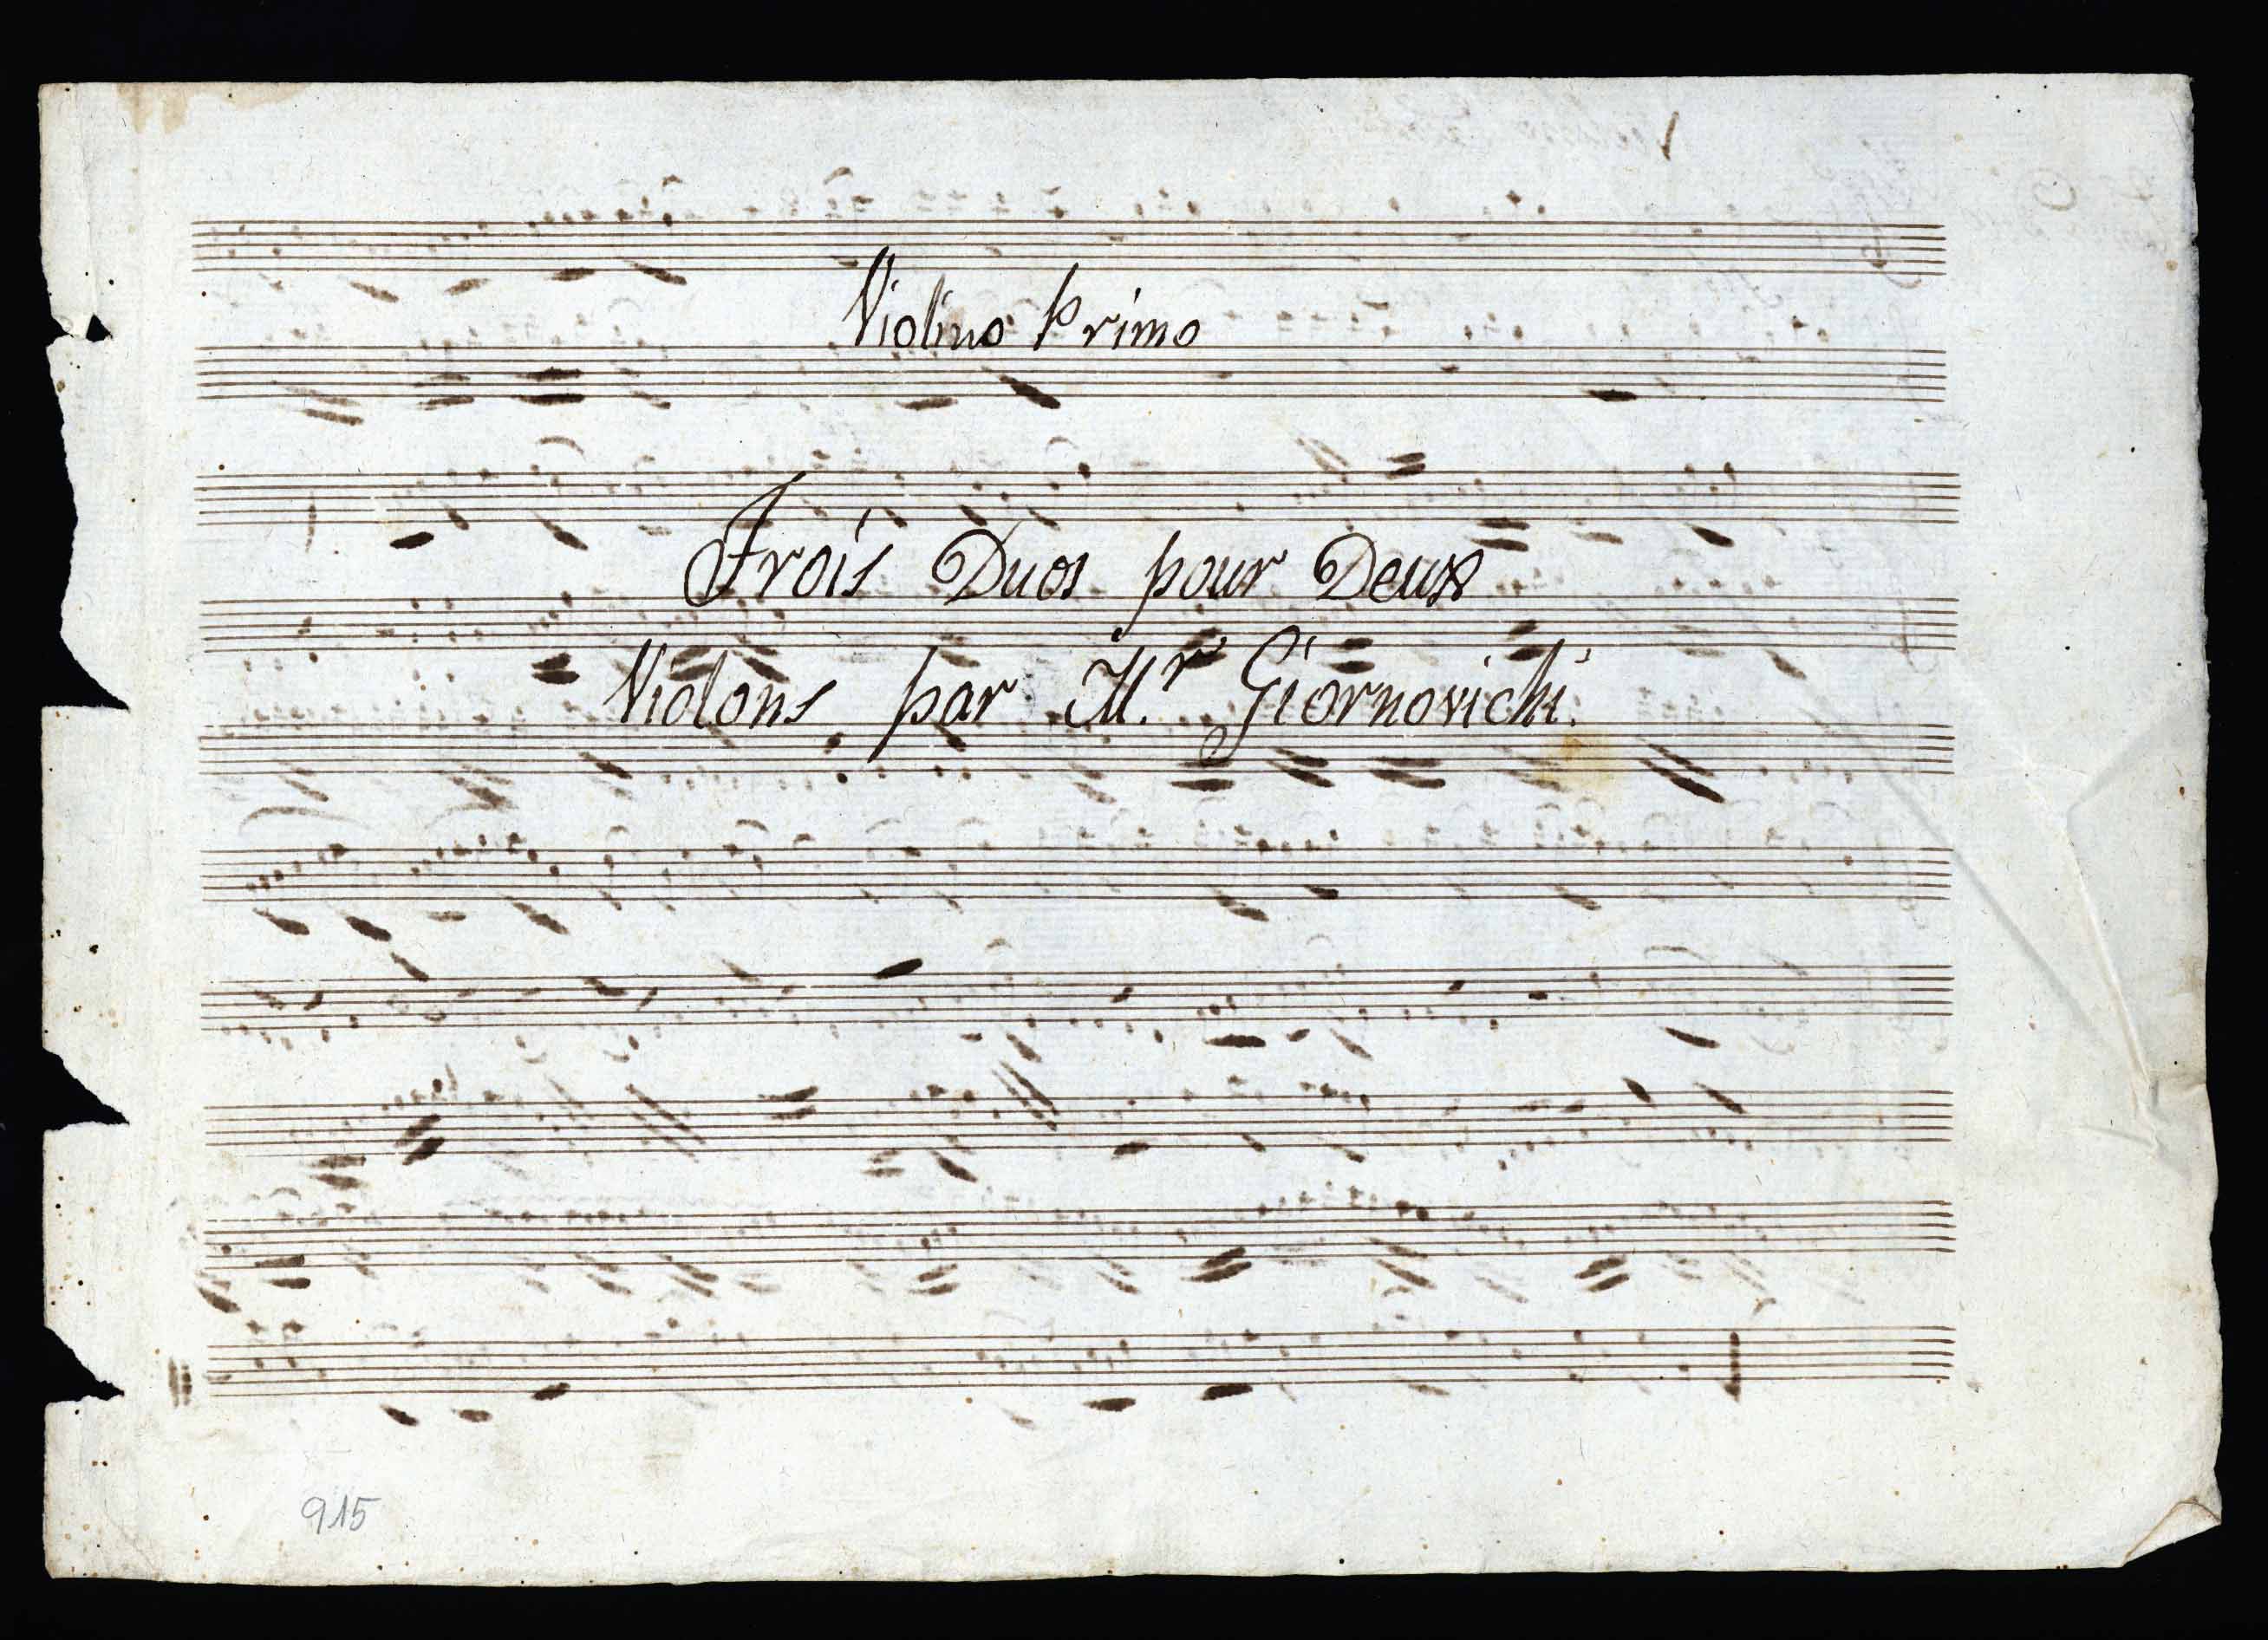 Violino Primo
Trois Duos pour Deux
Violons par M.r Giornovichi.
915